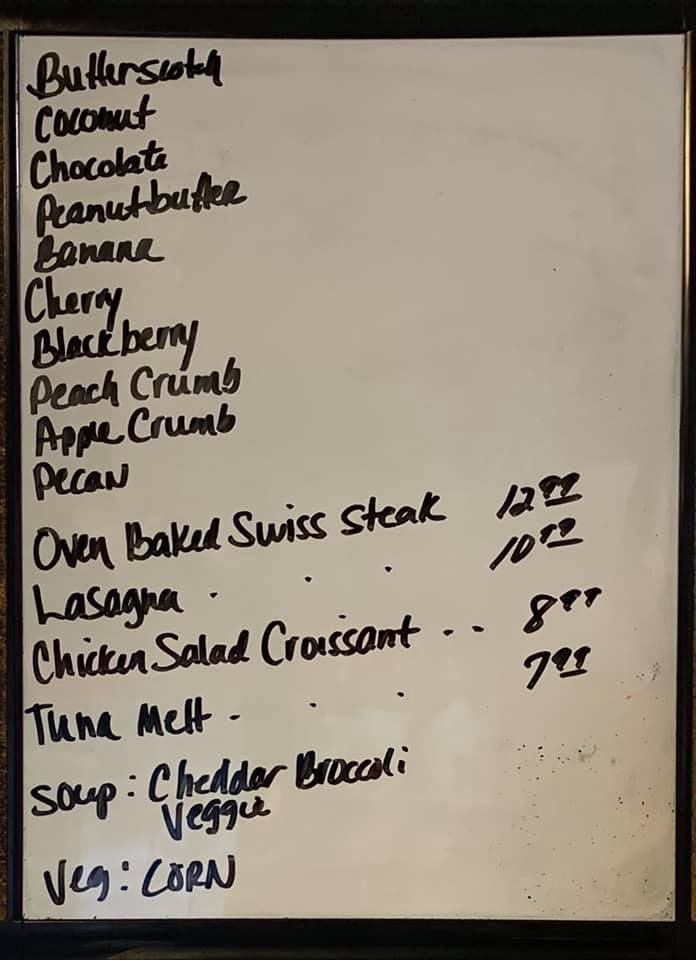 Butterscotch
Coconut
Chocolate
Peanutbutter
Banana
Cherry
Blackberry
Peach Crumb
Apple Crumb
Pecan
Oven Baked Swiss Steak 12.99
Lasagna . . . 10.99
Chicken Salad Croissant . . 8.99
Tuna Melt . . . 7.99
Soup: Cheddar Broccoli
Veggie
Veg: CORN